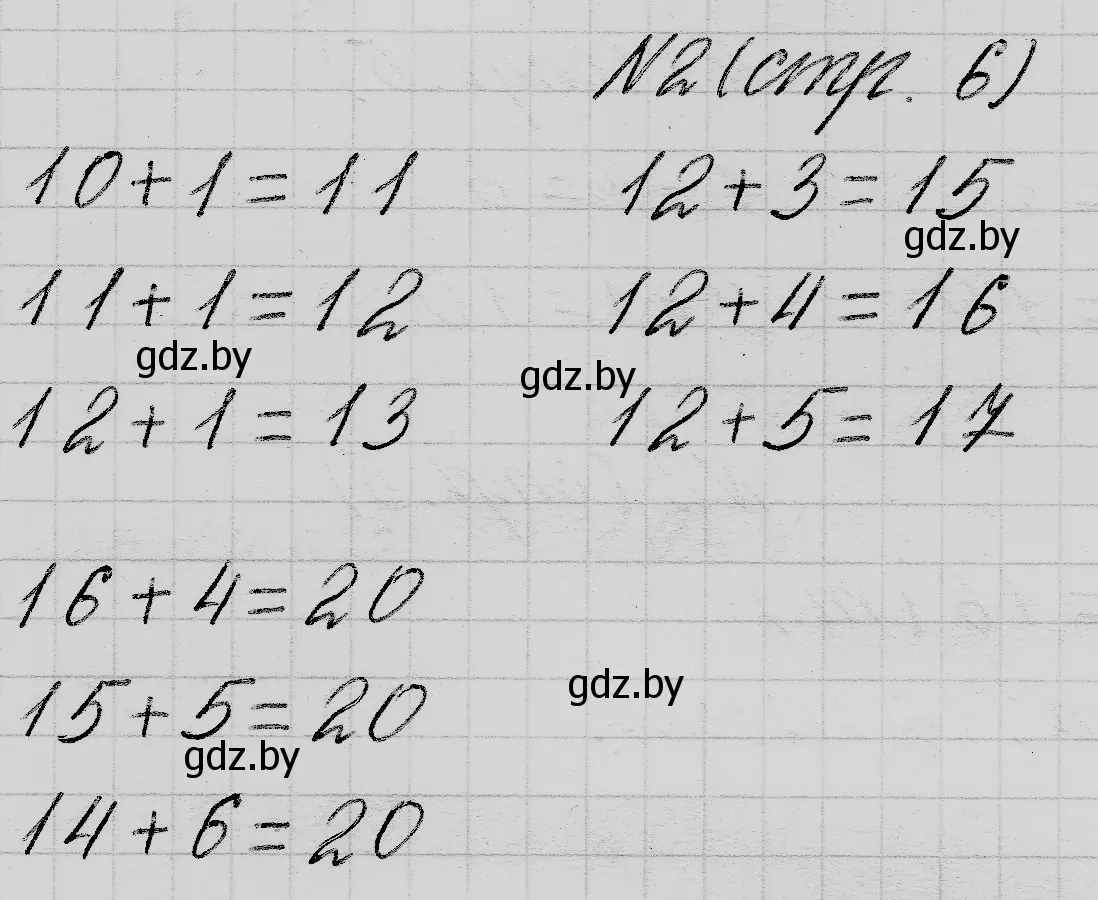 N2 (стр. 6)
10+1=11 12+3=15
gdz.by
11+1=12 12+4=16
gdz.by gdz.by
12+1=13 12+5=17
16+4=20
gdz.by
15+5=20
gdz.by
14+6=20